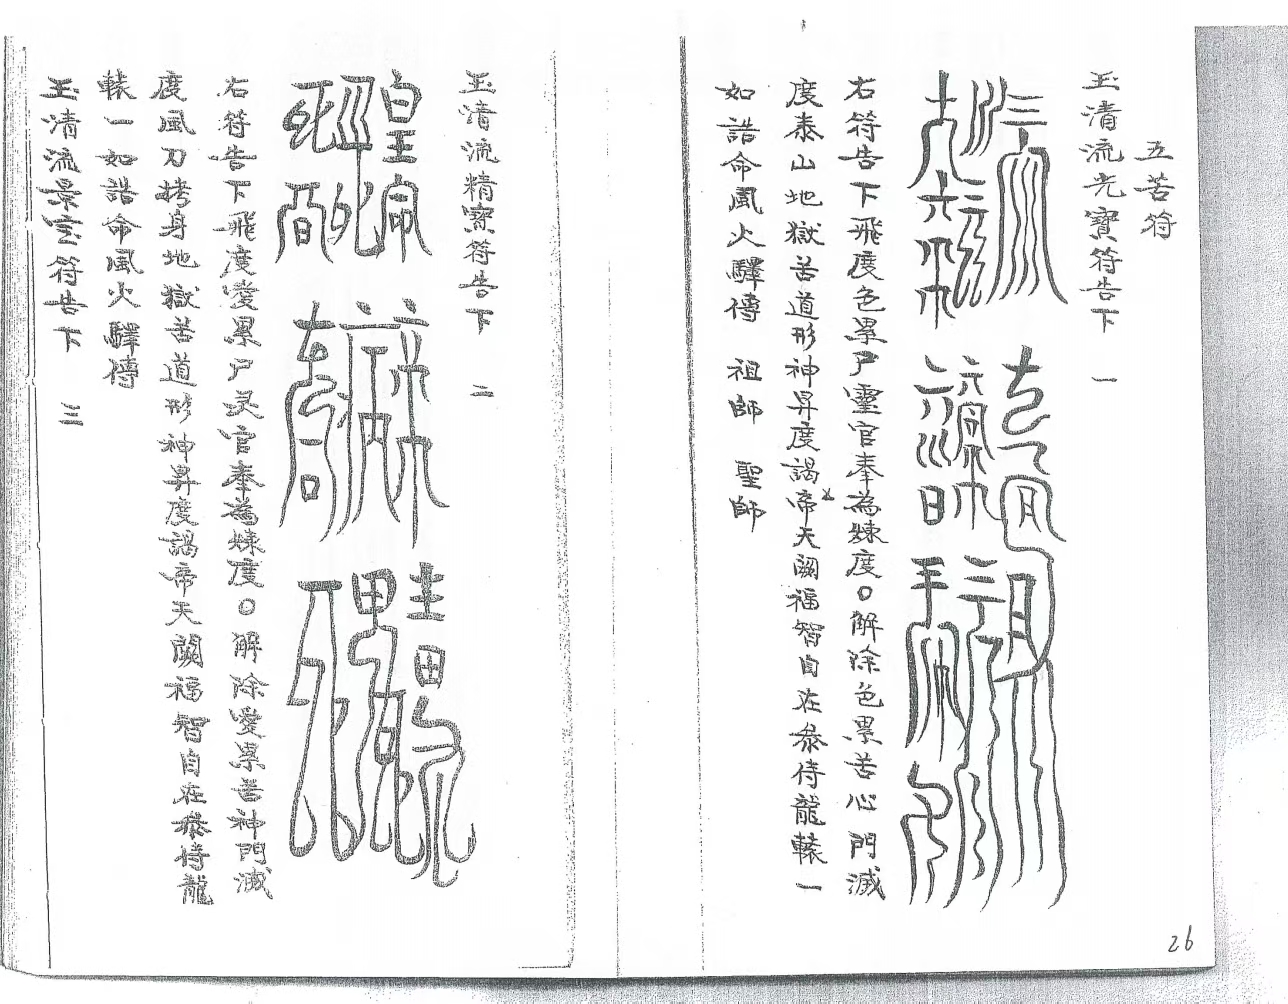 五苦符
玉清流光寶符告下 一
右符告下飛度色累尸靈官奉為煉度○解除色累苦心門滅
度泰山地獄苦道形神昇度謁帝天闕福智自在叅侍龍轅一
如誥命風火驛傳 祖師 聖師
26
玉清流精寶符告下 二
右符告下飛度愛累尸灵官奉為煉度○解除愛累苦神門滅
度風刀拷身地獄苦道形神昇度謁帝天闕福智自在叅侍龍
轅一如誥命風火驛傳
玉清流景宝符告下 三